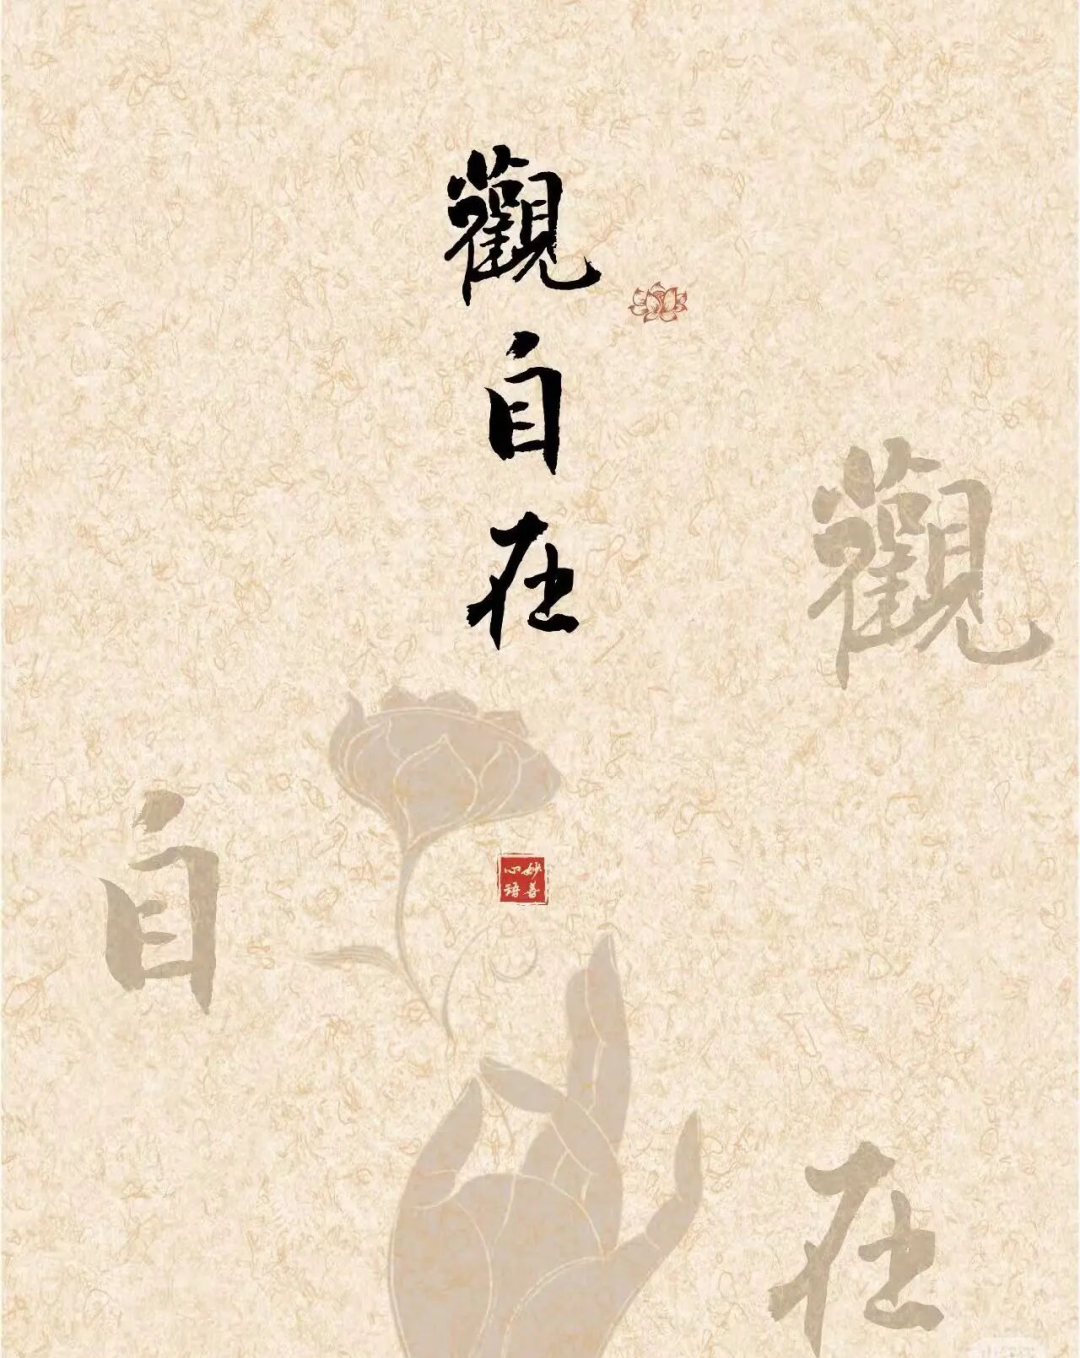 觀自在
觀
自
在
妙善
心语